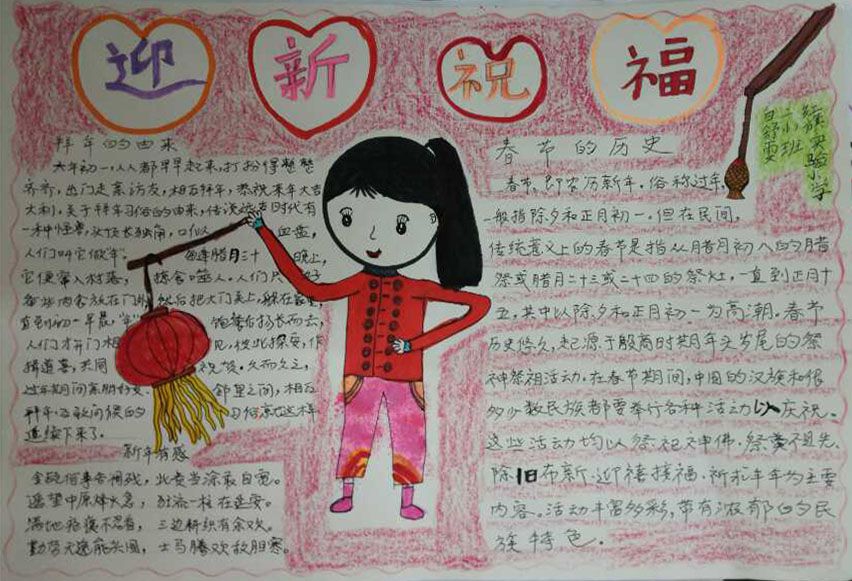 迎新祝福
拜年的由来
大年初一,人人都早早起来,打扮得整整
齐齐,出门走亲访友,相互拜年,恭祝来年大吉
大利。关于拜年习俗的由来,传说远古时代有
一种怪兽,头顶长独角,口似 血盆,
人们叫它做年。 每年腊月三十 晚上,
它便窜入村落, 掠食噬人。人们只好
备些肉食放在门外,然后把大门关上,躲在家里,
直到初一早晨,"年" 饱餐后扬长而去,
人们才开门相 见,彼此 作
揖道喜,共同 祝贺。久而久之,
过年期间亲朋好友、 邻里之间,相互
拜年以致问候的 习俗就这样
延续下来了。
新年有感
金瓯何事各凋残,此责当涂最自宽。
遥望中原烽火急,狂流一柱在延安。
满地疮痍不忍看,三边耕织有余欢。
勤劳 逸能兴国,士马腾欢敌胆寒。
春节的历史
春节,即农历新年。俗称过年,
一般指除夕和正月初一。但在民间,
传统意义上的春节是指从腊月初八的腊
祭或腊月二十三或二十四的祭灶,一直到正月十
五,其中以除夕和正月初一为高潮。春节
历史悠久,起源于殷商时期年头岁尾的祭
神祭祖活动。在春节期间,中国的汉族和很
多少数民族都要举行各种活动以庆祝。
这些活动均以祭祀 神佛、祭奠祖先、
除旧布新、迎禧接福、祈求丰年为主要
内容。活动丰富多彩,带有浓郁的民
族特色。
实验小学
班
舒雯